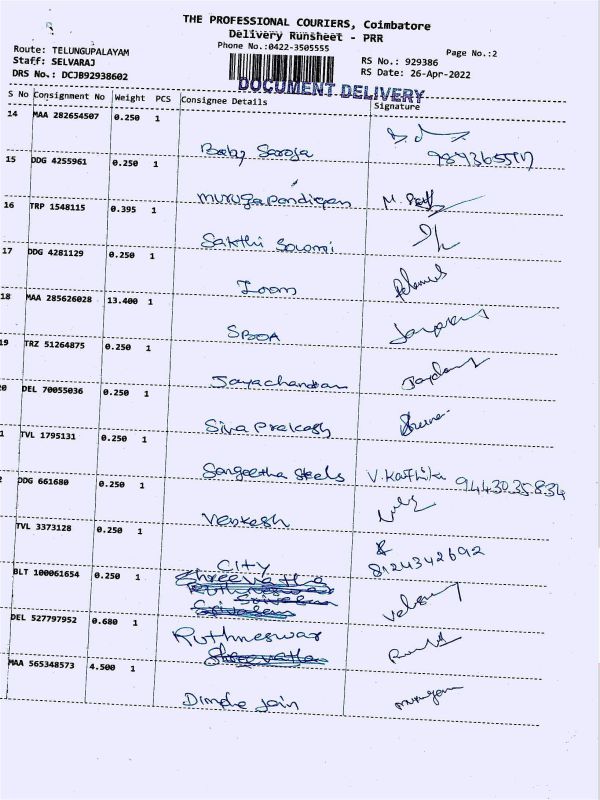 THE PROFESSIONAL COURIERS, Coimbatore
Delivery Runsheet - PRR
Phone No.:0422-3505555
Page No.:2
Route: TELUNGUPALAYAM
Staff: SELVARAJ
DRS No.: DCJB92938602
RS No.: 929386
RS Date: 26-Apr-2022
DOCUMENT DELIVERY
S No Consignment No Weight PCS Consignee Details Signature
14 MAA 282654507 0.250 1
Baby Saroja
15 DDG 4255961 0.250 1
Murugapandiyan
16 TRP 1548115 0.395 1
Sakthi
17 DDG 4281129 0.250 1
Zoom
18 MAA 285626028 13.400 1
SBOA
19 TRZ 51264875 0.250 1
Jayachandran
0 DEL 70055036 0.250 1
Siva Prakash
1 TVL 1795131 0.250 1
Sangeetha Steels V. Karthika 94430.35.834
2 DDG 661680 0.250 1
Venkesh
TVL 3373128 0.250 1
City
8124342692
BLT 100061654 0.250 1
DEL 527797952 0.680 1
Ruthneswar
MAA 565348573 4.500 1
Jain
murugan